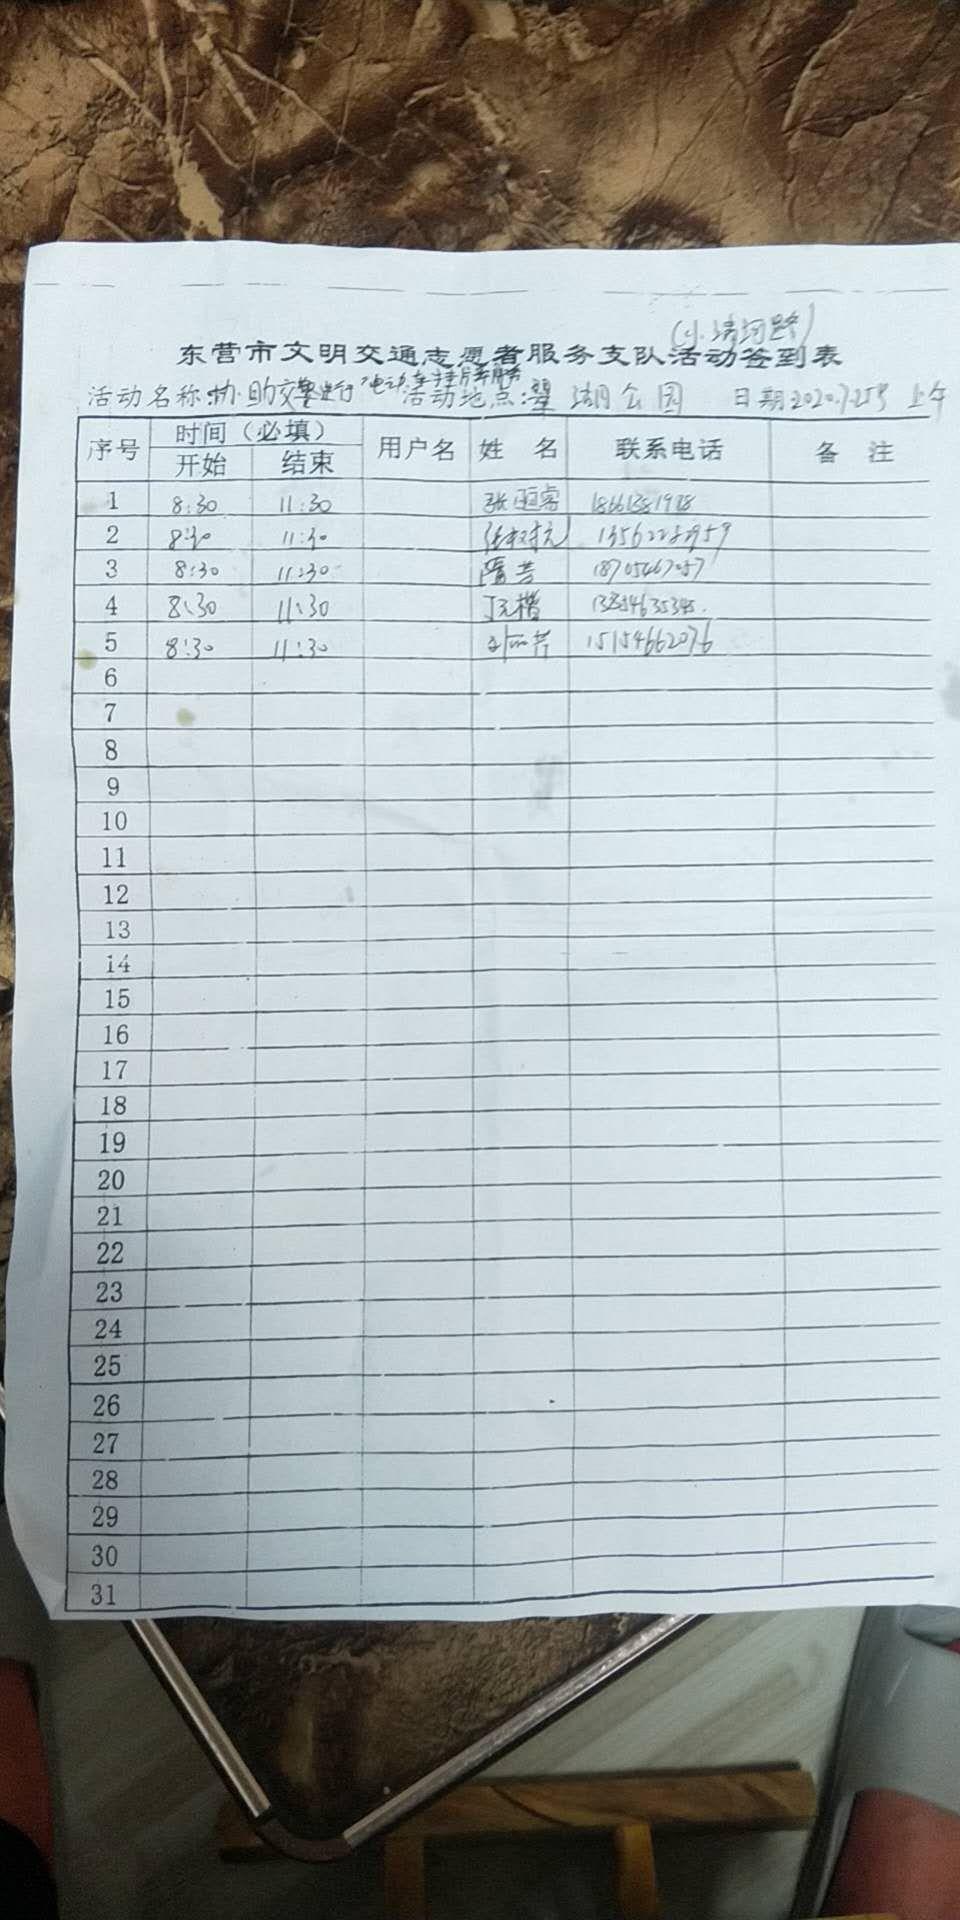 (小清河路)
东营市文明交通志愿者服务支队活动签到表
活动名称:协助交警进行"电动车挂牌服务 活动地点:翠湖公园 日期2020.7.25号 上午
序号 时间（必填） 用户名 姓 名 联系电话 备 注
开始 结束
1 8:30 11:30 18661381988
2 8:30 11:30
3 8:30 11:30 隋芳 18705467057
4 8:30 11:30 丁元楷
5 8:30 11:30 15154662076
6
7
8
9
10
11
12
13
14
15
16
17
18
19
20
21
22
23
24
25
26
27
28
29
30
31